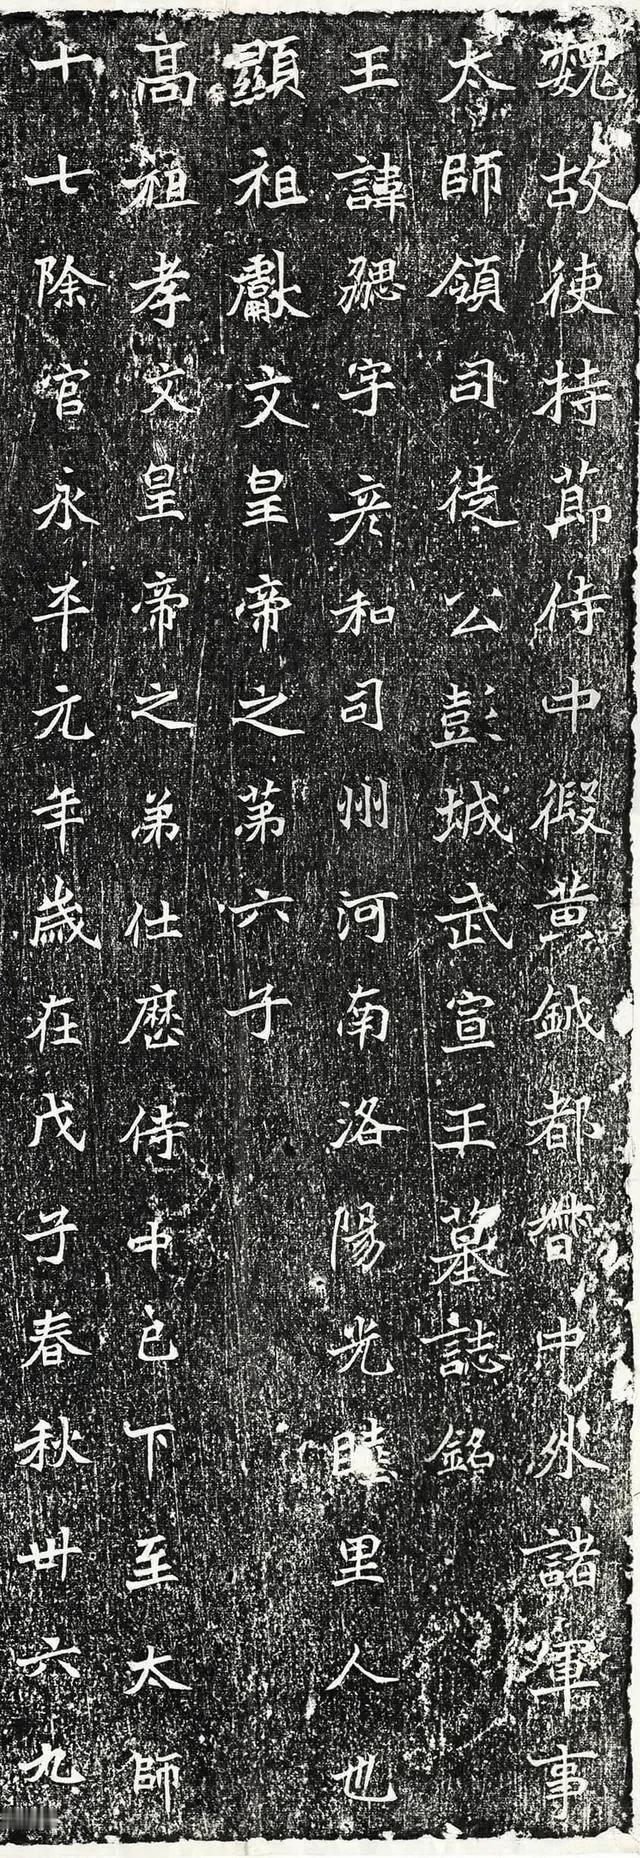 魏故使持節侍中假黃鉞都督中外諸軍事
太師領司徒公彭城武宣王墓誌銘
王諱勰字彥和司州河南洛陽光睦里人也
顯祖獻文皇帝之第六子
高祖孝文皇帝之弟仕歷侍中已下至太師
十七除官永平元年歲在戊子春秋卅六九